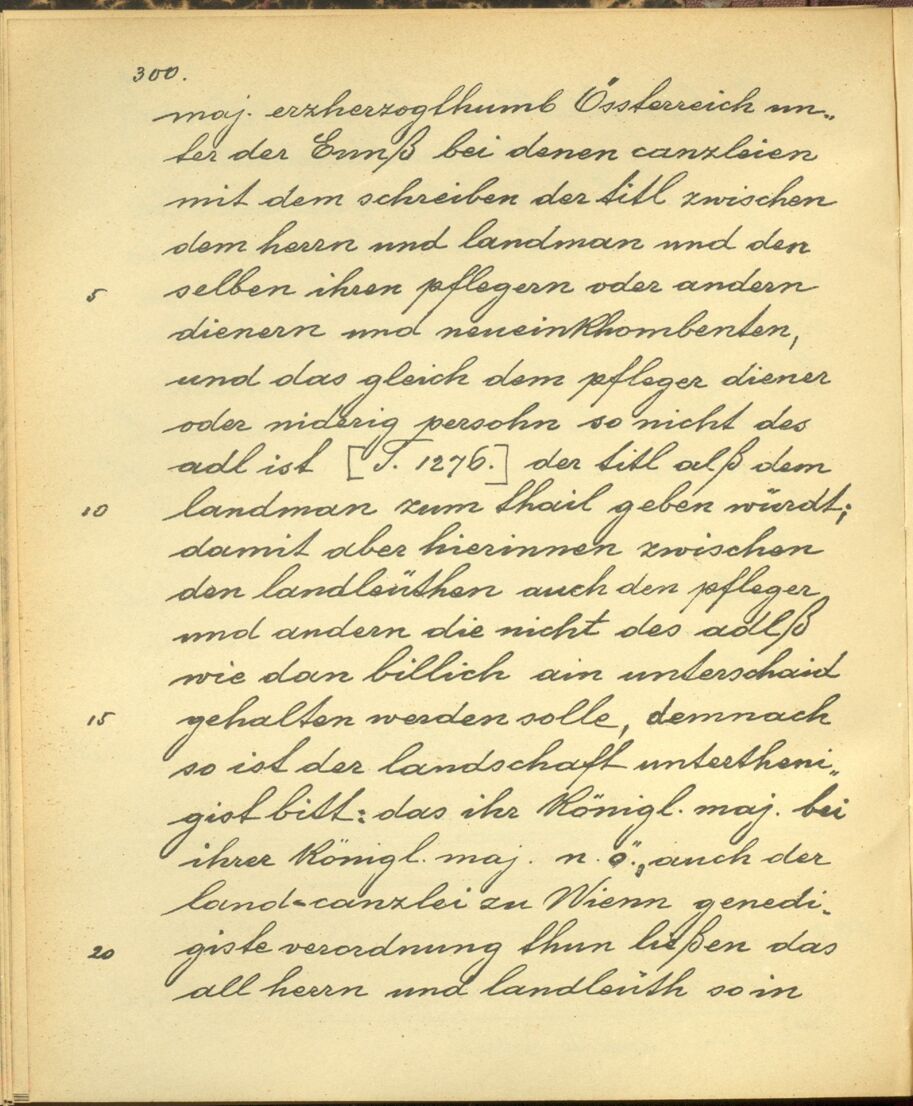 300.
maj. erzherzogthumb Össterreich un„
ter der Ennß bei denen canzleien
mit dem schreiben der titl zwischen
dem herrn und landman und den
5 selben ihren pflegern oder andern
dienern und neueinkhombenten,
und das gleich dem pfleger diener
oder niderig persohn so nicht des
adl ist [T. 1276.] der titl alß dem
10 landman zum thail geben würdt;
damit aber hierinnen zwischen
den landleüthen auch den pfleger
und andern die nicht des adlß
wie dan billich ain unterschaid
15 gehalten werden solle, demnach
so ist der landschaft untertheni„
gist bitt: das ihr Königl. maj. bei
ihrer Königl. maj. n. ö., auch der
land-canzlei zu Wienn genedi„
20 giste verordnung thun ließen das
all herrn und landleüth so in